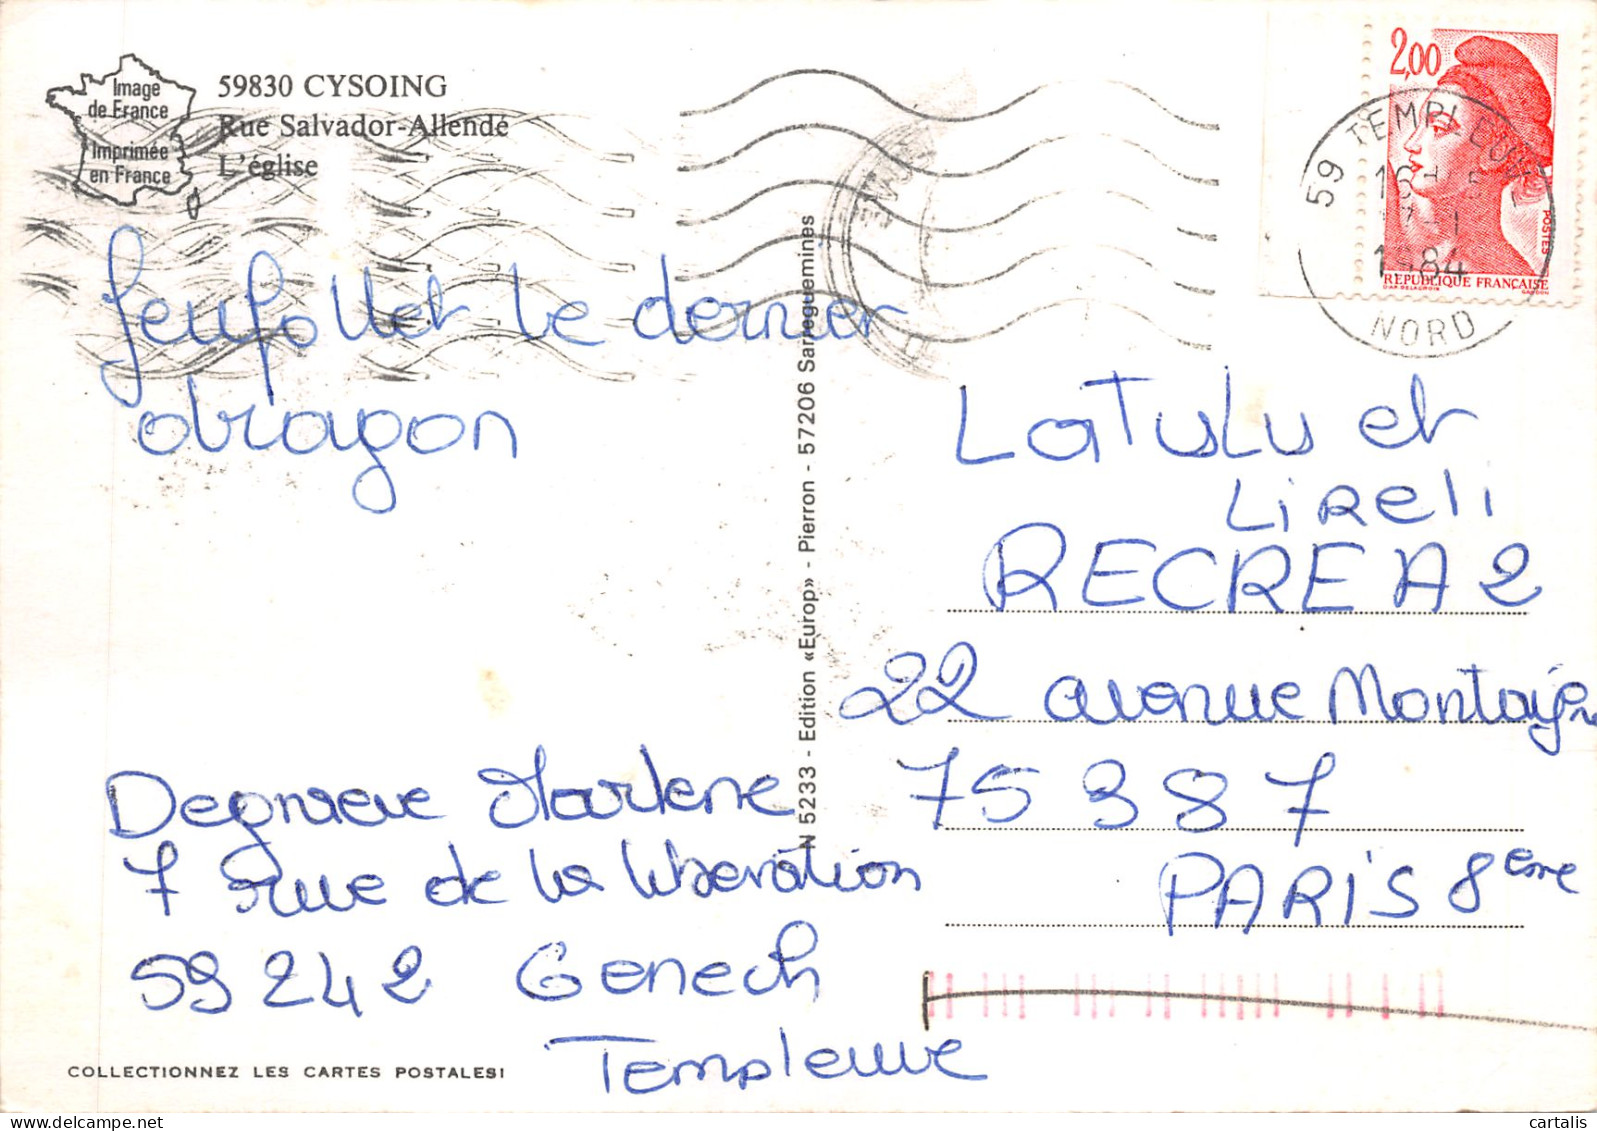 Image
de France
Imprimée
en France
59830 CYSOING
Rue Salvador-Allendé
L'église
2,00
59 TEMPLEUVE
16 H 15
1984
NORD
POSTES
REPUBLIQUE FRANÇAISE
feufollet le dernier
dragon
N 5233 - Edition «Europ» - Pierron - 57206 Sarreguemines
LaTuLu et
Lireli
RECRE A2
22 avenue Montaigne
75 387
PARiS 8ème
Marlene
7 rue de la liberation
59 242 Genech
Templeuve
COLLECTIONNEZ LES CARTES POSTALES!
cartalis